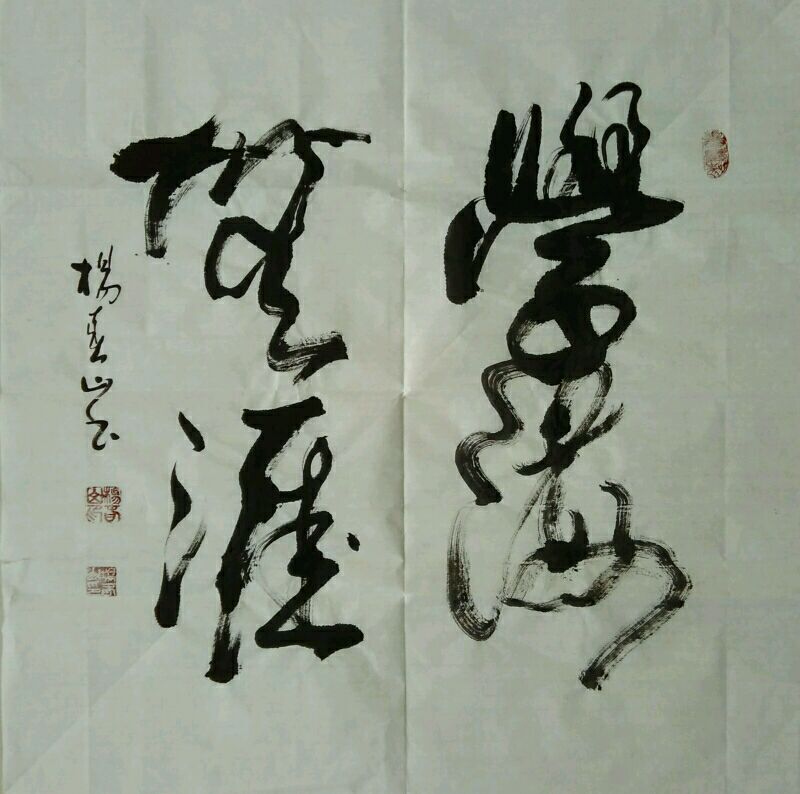 學海
無涯
楊春山